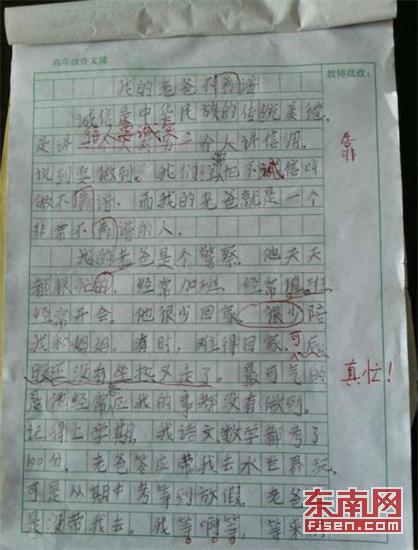 高年级作文簿
教师批改：
我的老爸不靠谱
诚信是中华民族的传统美德，
是讲 给人要诚实 一个人讲信用，
说到要做到。我们经常把不诚信叫
做不靠谱。而我的老爸就是一个
非常不靠谱的人。
我的老爸是个警察。他天天
都很忙的，经常加班，经常值班
经常开会。他很少回家，很少陪
我和妈妈。有时，难得回家，可屁
股还没有坐热又走了。最可气的
是他经常应我的事都没有做到。
记得上学期，我语文数学都考了
100分，老爸答应带我去水世界玩，
可是从期中考等到放假，老爸
是没带我去。我等啊等，等来
靠
真忙！
东南网
FJSEN.COM